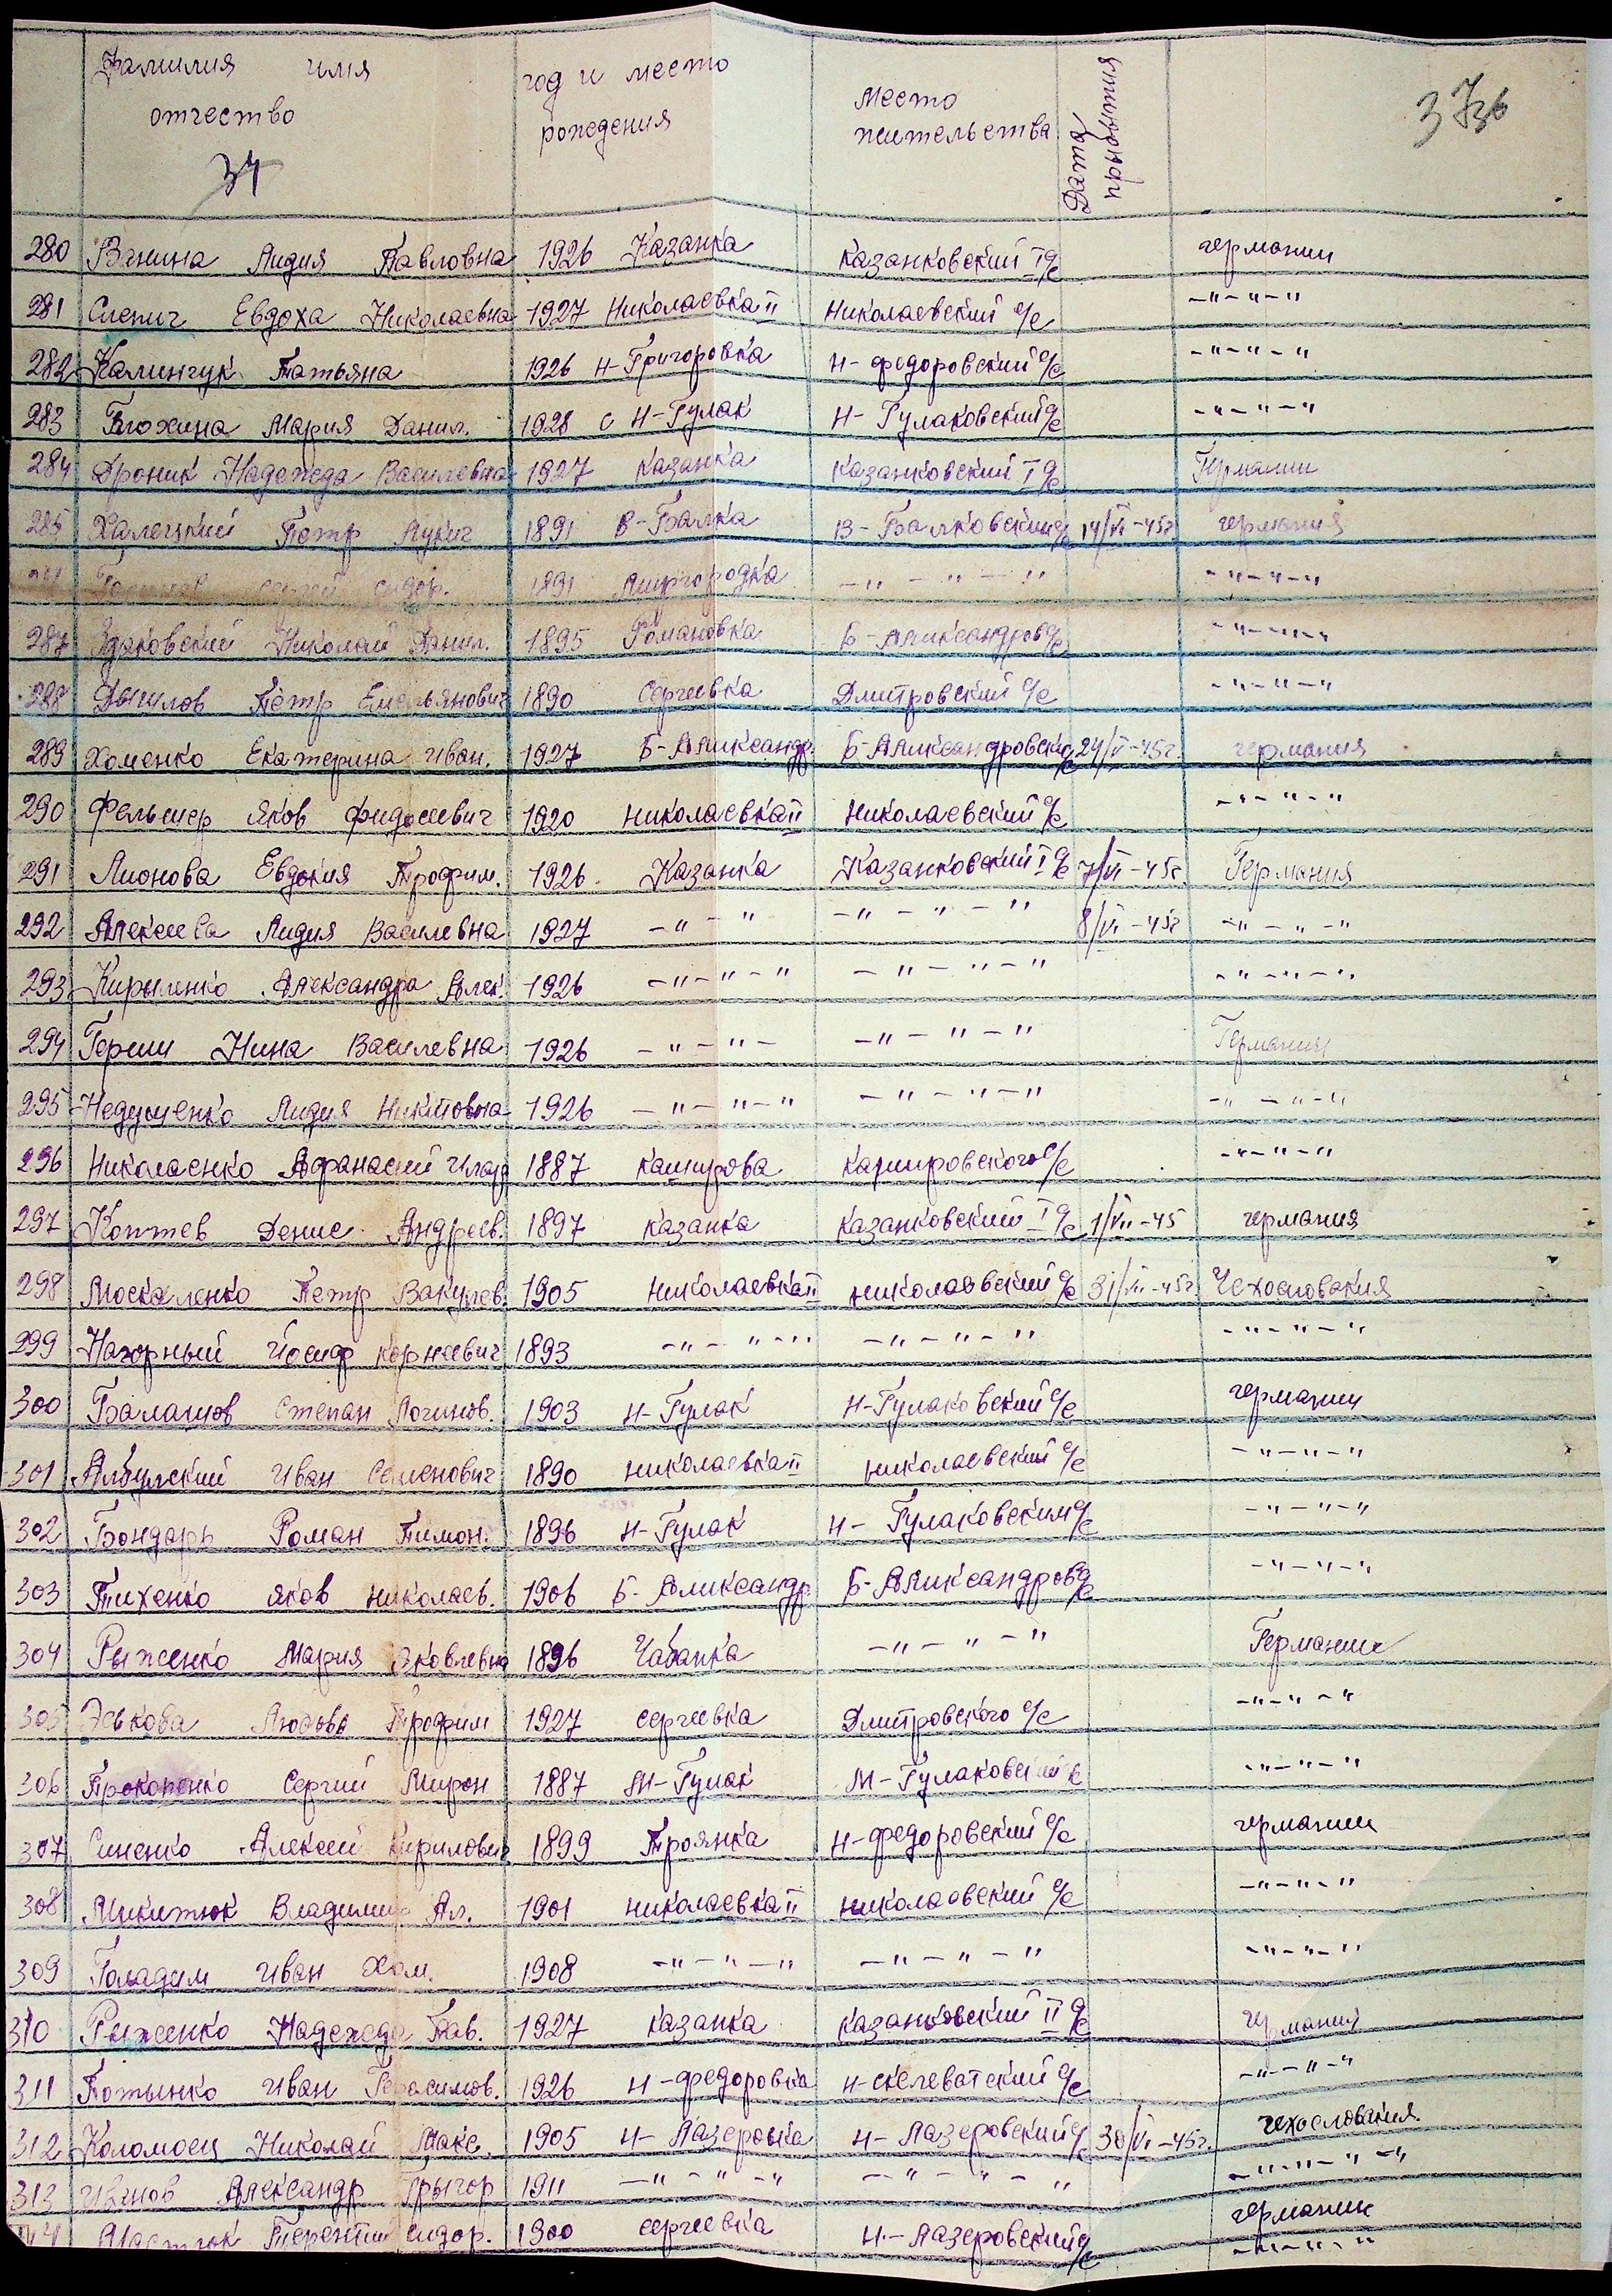 Фамилия имя отчество год и место рождения Место жительства Дата прибытия
34 37зв
280 Ванина Лидия Павловна 1926 Казанка Казанковский I с/с германии
281 Слепич Евдоха Николаевна 1927 Николаевка II Николаевский с/с -"-"-"
282 Калинчук Татьяна 1926 Н-Григоровка Н-федоровский с/с -"-"-"
283 Блохина Мария Данил. 1928 с Н-Гулак Н-Гулаковский с/с -"-"-"
284 Дроник Надежда Василевна 1927 Казанка Казанковский I с/с Германии
285 Халецкий Петр Лукич 1891 В-Балка В-Балковский с/с 14/VI-45г. германия
Сидор. 1891 Миргородка -"-"-" -"-"-"
287 Здаковский Николай Данил. 1895 Романовка Б-Аликсандров с/с -"-"-"
288 Данилов Петр Емельянович 1890 Сергеевка Дмитровский с/с -"-"-"
289 Хоменко Екатерина Иван. 1927 Б-Аликсандр. Б-Аликсандровский с/с 24/VI-45г. германия
290 Фельшер Яков Фидосеевич 1920 Николаевка II Николаевский с/с -"-"-"
291 Лионова Евдокия Трофим. 1926 Казанка Казанковский I с/с 7/VI-45г. Германия
292 Алексеева Лидия Василевна 1927 -"-" -"-"-" 8/VI-45г -"-"-"
293 Кирыленко Александра Алек. 1926 -"-"-" -"-"-" -"-"-"
294 Герши Нина Василевна 1926 -"-"- -"-"-" Германии
295 Недуменко Лидия Никитовна 1926 -"-"-" -"-"-" -"-"-"
296 Николаенко Афанасий Илар 1887 Каширова Кашировского с/с -"-"-"
297 Коптев Денис Андреев. 1897 Казанка Казанковский I с/с 1/VII-45 германия
298 Москаленко Петр Вакулев. 1905 Николаевка II Николаевский с/с 31/VII-45г. Чехословакия
299 Нагорный Йосиф Корнеевич 1893 -"-"-" -"-"-" -"-"-"
300 Балашов Степан Логинов. 1903 Н-Гулак Н-Гулаковский с/с германии
301 Албулский Иван Семенович 1890 Николаевка II Николаевский с/с -"-"-"
302 Бондарь Роман Тимон. 1896 Н-Гулак Н-Гулаковским с/с -"-"-"
303 Тихенко Яков Николаев. 1906 Б-Аликсандр. Б-Аликсандров с/с -"-"-"
304 Рыженко Мария Яковлевна 1896 Чабанка -"-"-" Германии
305 Эськова Любовь Трофим 1927 Сергеевка Дмитровского с/с -"-"-"
306 Прокопенко Сергий Мирон 1887 М-Гулак М-Гулаковский с -"-"-"
307 Синенко Алексей Кирилович 1899 Троянка Н-федоровский с/с германии
308 Микитюк Владимир Ал. 1901 Николаевка II Николаевский с/с -"-"-"
309 Голадим Иван Хом. 1908 -"-"-" -"-"-" -"-"-"
310 Рыженко Надежда Пав. 1927 Казанка Казанковский II с/с германии
311 Потынко Иван Герасимов. 1926 Н-федоровка Н-скелеватский с/с -"-"-"
312 Коломоец Николай Макс. 1905 Н-Лазеровка Н-Лазеровский с/с 30/VI-45г. Чехословакия.
313 Иванов Александр Грыгор 1911 -"-"-" -"-"-" -"-"-"-"
Терентий Сидор. 1900 Сергеевка Н-Лазеровский с/с германии
-"-"-"